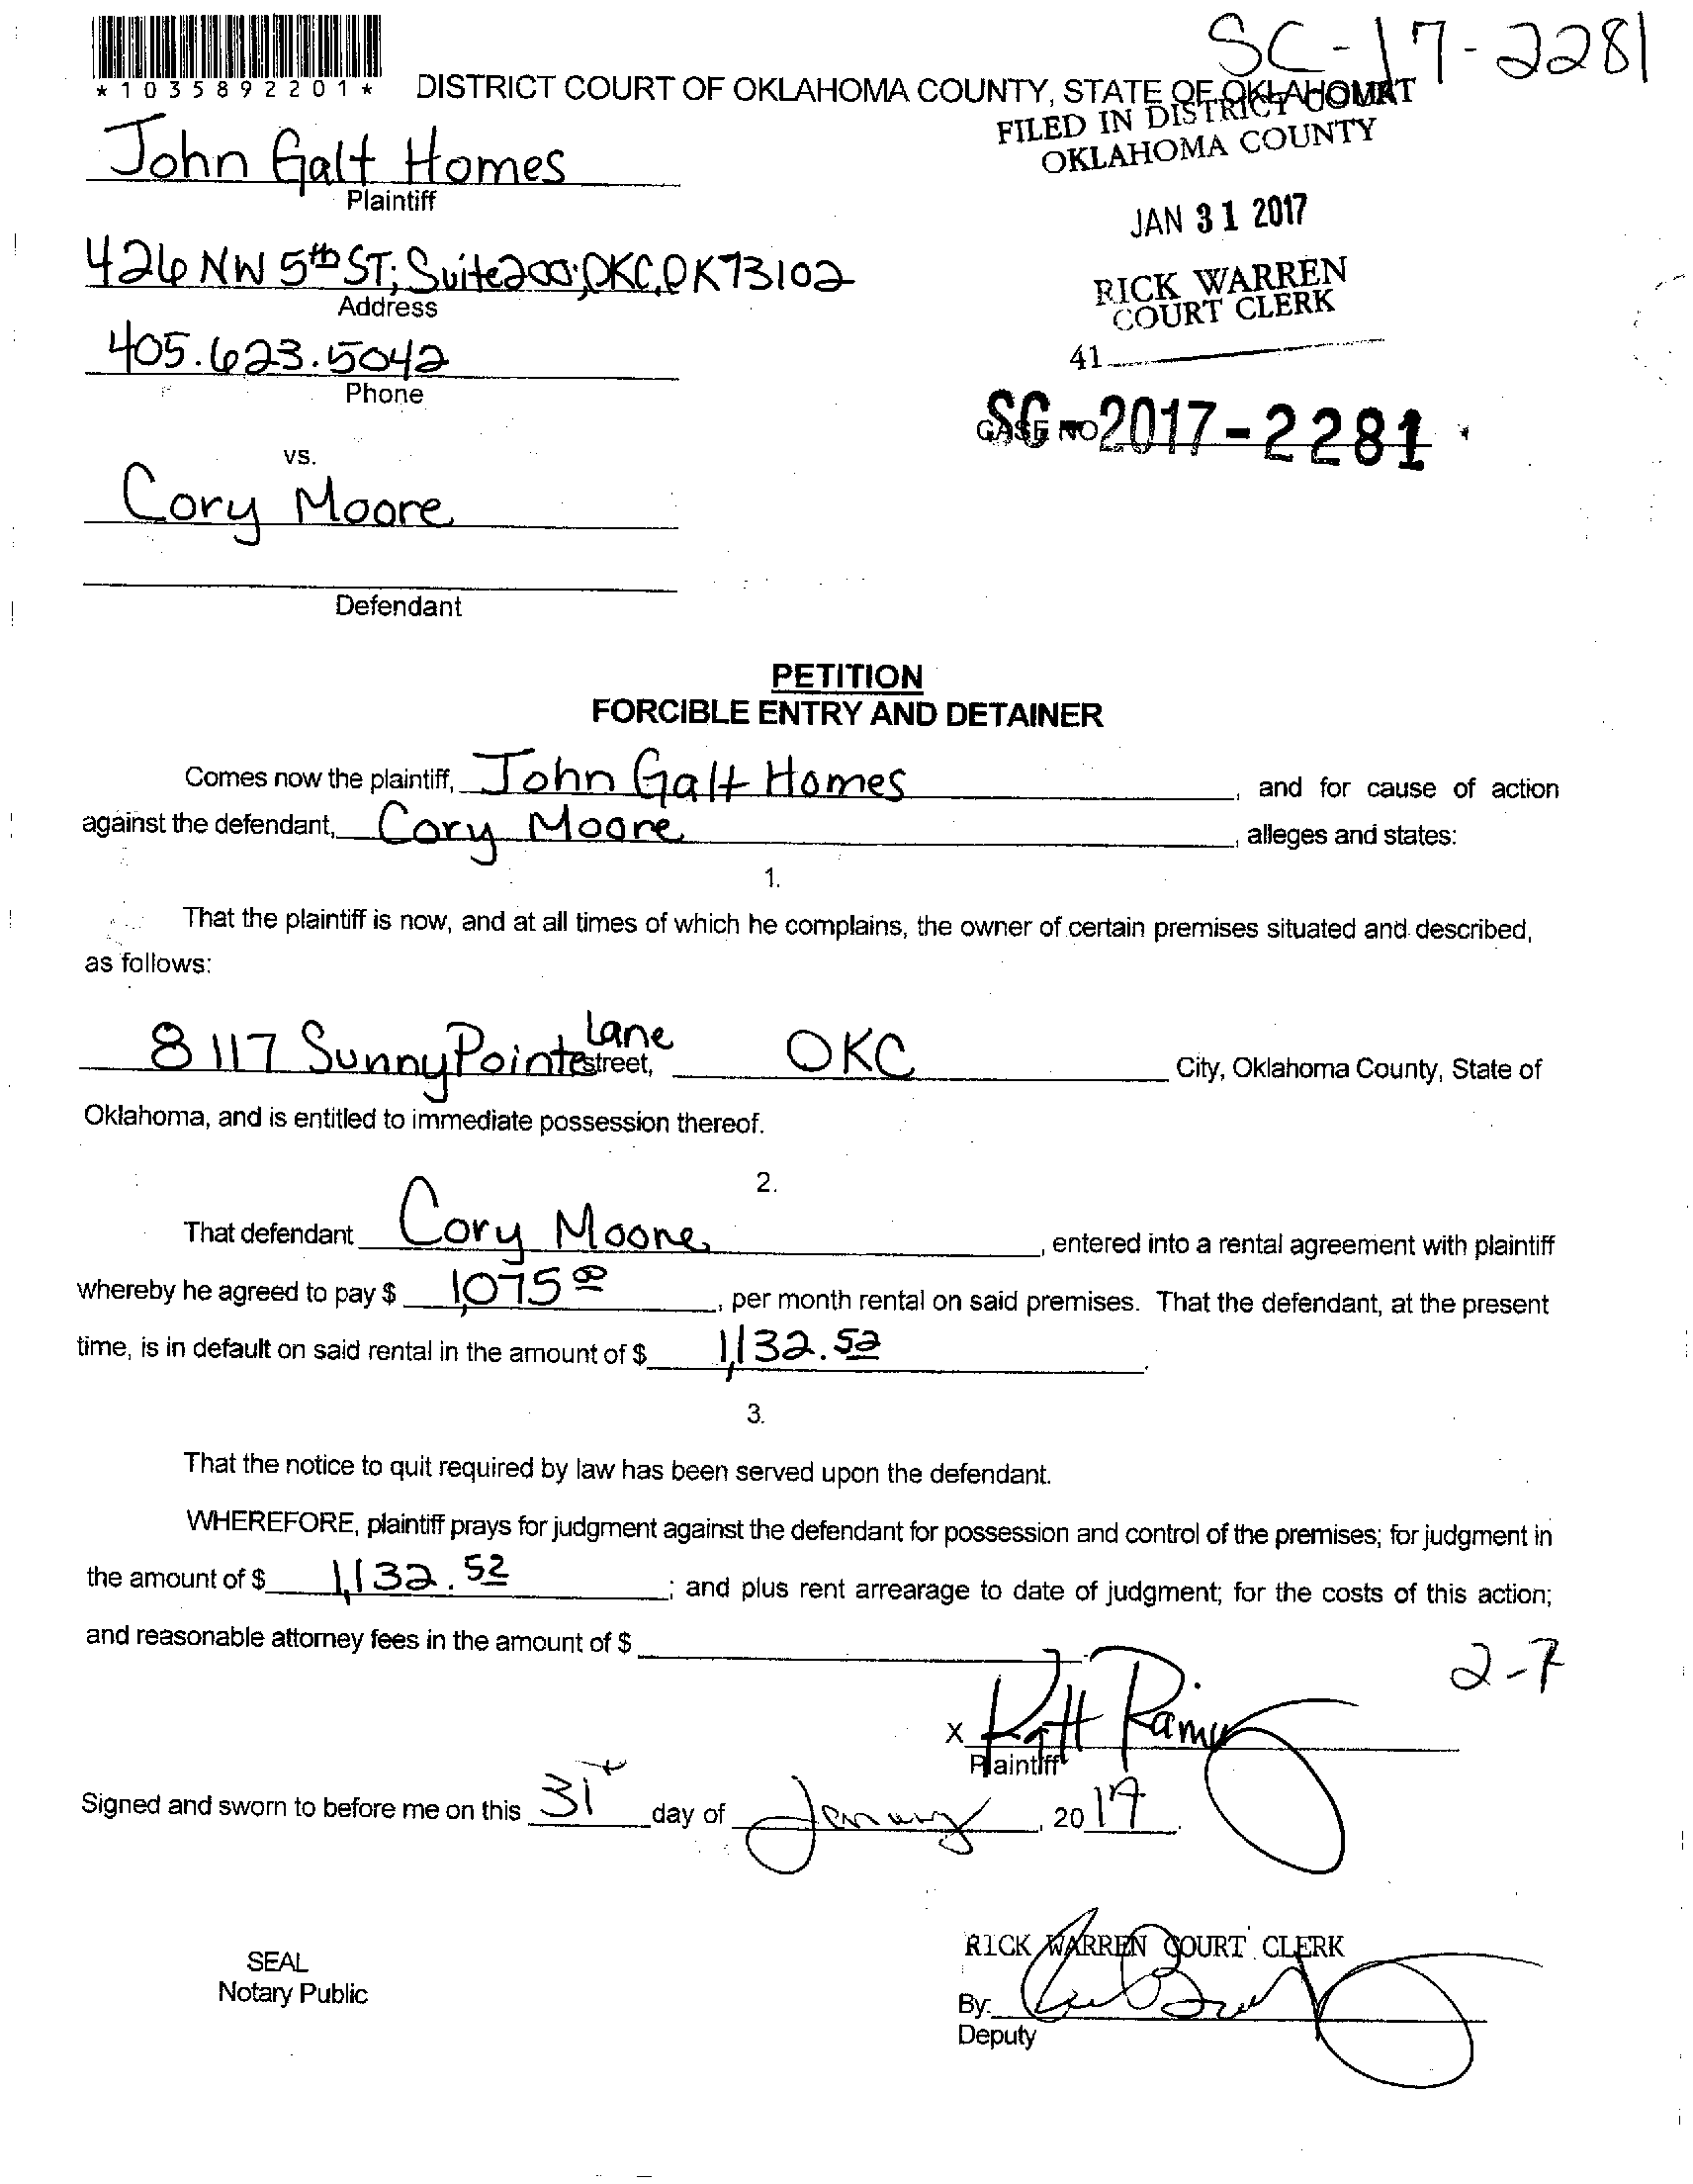 SC-17-2281
*1035892201*
DISTRICT COURT OF OKLAHOMA COUNTY, STATE OF OKLAHOMA
FILED IN DISTRICT COURT
OKLAHOMA COUNTY
John Galt Homes
Plaintiff
JAN 31 2017
426 NW 5th ST; Suite 200; OKC, OK 73102
Address
RICK WARREN
COURT CLERK
405.623.5042
Phone
41
SC-2017-2281
CASE NO
vs.
Cory Moore
Defendant
PETITION
FORCIBLE ENTRY AND DETAINER
Comes now the plaintiff, John Galt Homes, and for cause of action
against the defendant, Cory Moore, alleges and states:
1.
That the plaintiff is now, and at all times of which he complains, the owner of certain premises situated and described,
as follows:
8117 Sunny Pointe Lane street, OKC City, Oklahoma County, State of
Oklahoma, and is entitled to immediate possession thereof.
2.
That defendant Cory Moore, entered into a rental agreement with plaintiff
whereby he agreed to pay $ 1,075 00, per month rental on said premises. That the defendant, at the present
time, is in default on said rental in the amount of $ 1,132.52.
3.
That the notice to quit required by law has been served upon the defendant.
WHEREFORE, plaintiff prays for judgment against the defendant for possession and control of the premises; for judgment in
the amount of $ 1,132.52; and plus rent arrearage to date of judgment; for the costs of this action;
and reasonable attorney fees in the amount of $
2-7
X
Plaintiff
Signed and sworn to before me on this 31st day of January, 2017.
RICK WARREN COURT CLERK
SEAL
Notary Public
By:
Deputy